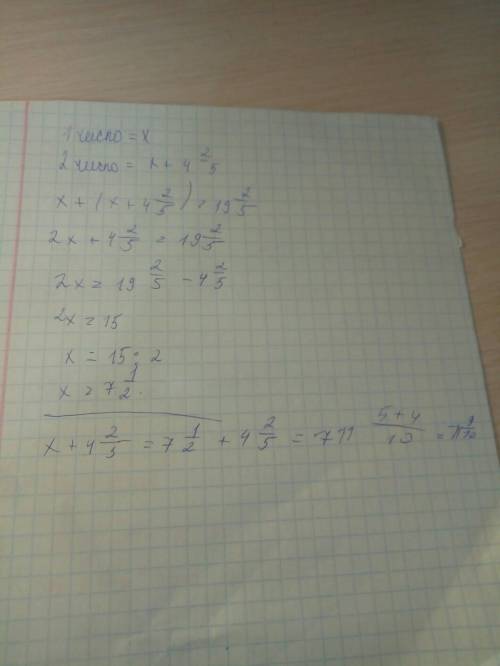 1 число = x
2 число = x + 4 2/5
x + (x + 4 2/5) = 19 2/5
2x + 4 2/5 = 19 2/5
2x = 19 2/5 - 4 2/5
2x = 15
x = 15 : 2
x = 7 1/2.
x + 4 2/5 = 7 1/2 + 4 2/5 = 11 5+4/10 = 11 9/10